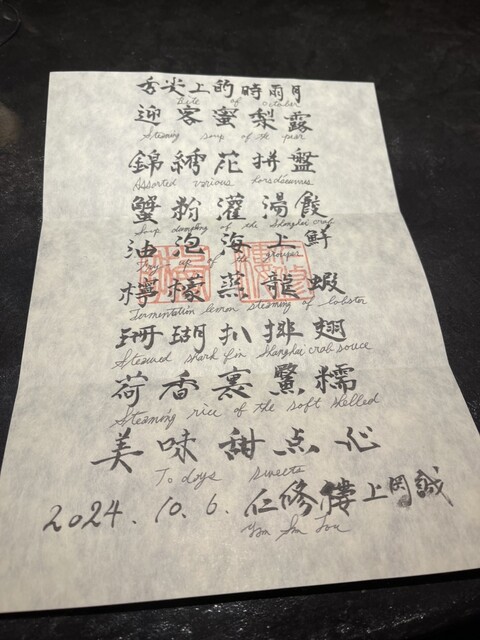 舌尖上的時雨月
Bite of October
迎客蜜梨露
Steaming soup of the pear
錦綉花拼盤
Assorted various horsdoeuvres
蟹粉灌湯餃
Soup dumpling of the Shanghai crab
油泡海上鮮
of the groupes
檸檬蒸龍蝦
Fermentation lemon steaming of lobster
珊瑚扒排翅
Stewed shark fin Shanghai crab souce
荷香裹鱉糯
Steaming rice of the soft shelled
美味甜点心
Todays sweets
2024. 10. 6. 仁修樓上岡誠